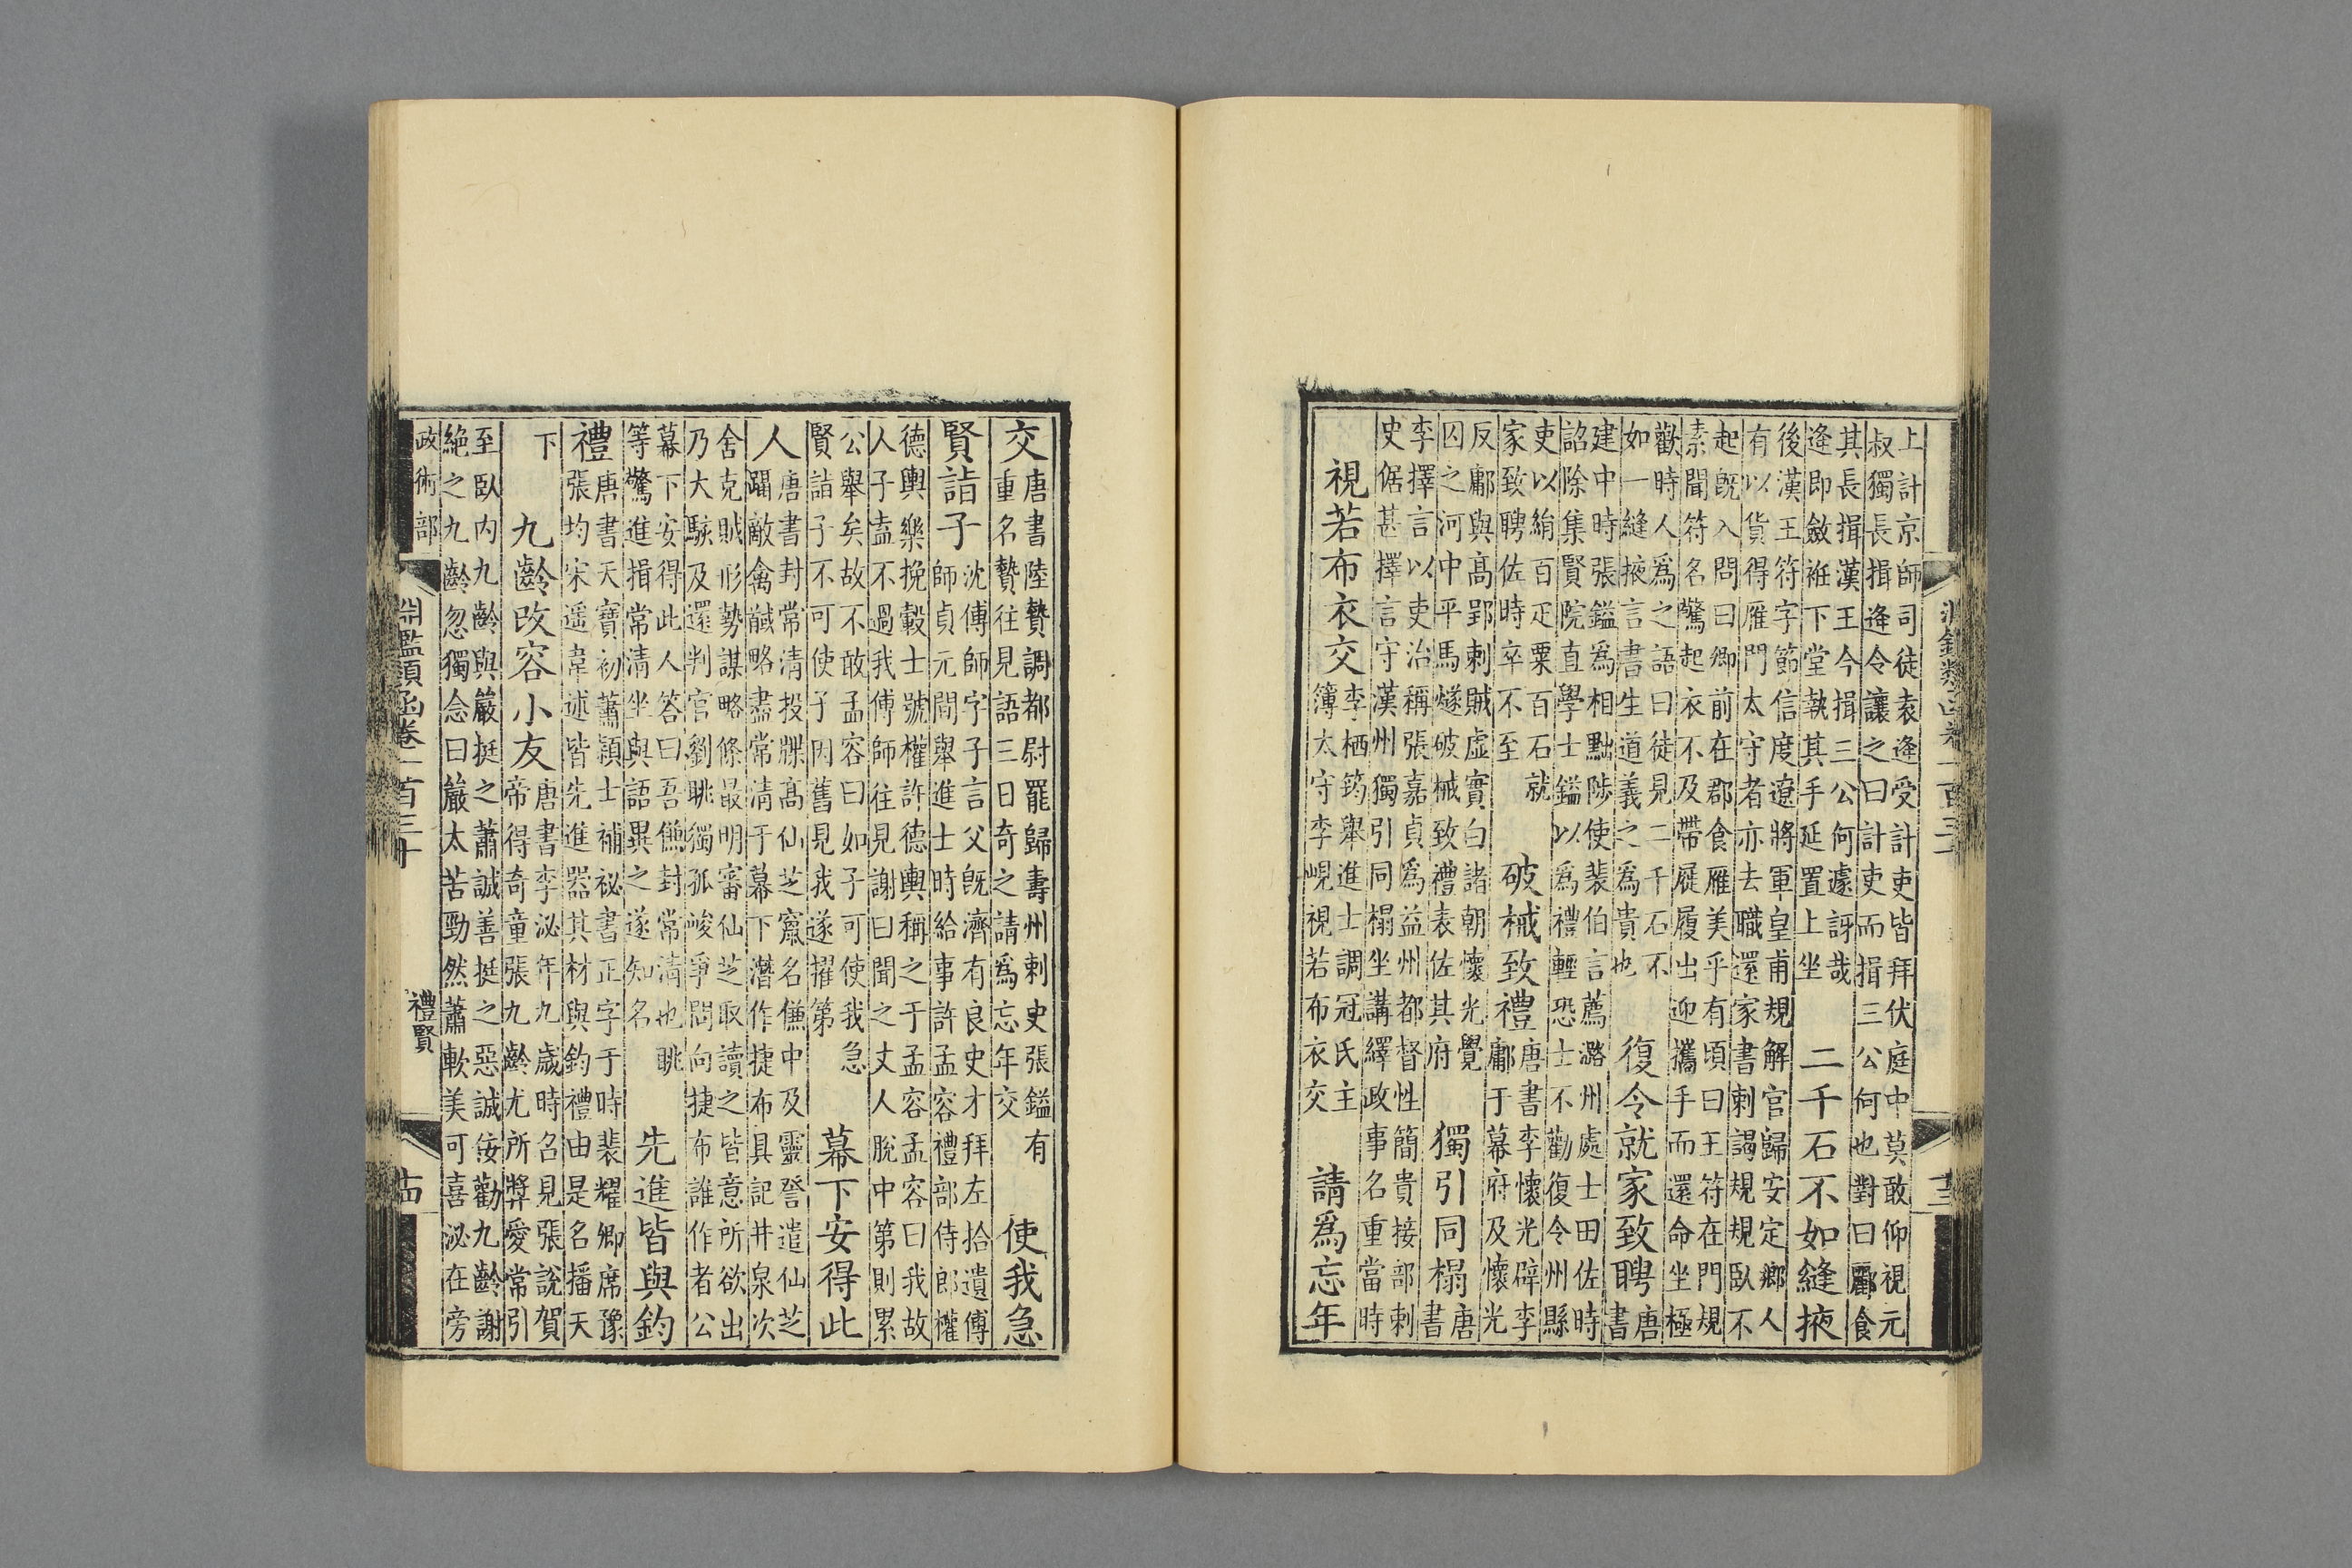 上計京師司徒袁逢受計吏皆拜伏庭中莫敢仰視元
叔獨長揖逢令讓之曰計吏而揖三公何也對曰酈食
其長揖漢王今揖三公何遽訝哉
逢即斂袵下堂執其手延置上坐
二千石不如縫掖
後漢王符字節信度遼將軍皇甫規解官歸安定鄉人
有以貨得雁門太守者亦去職還家書刺謁規規臥不
起旣入問曰卿前在郡食雁美乎有頃曰王符在門規
素聞符名驚起衣不及帶屣履出迎攜手而還命坐極
歡時人爲之語曰徒見二千石不
如一縫掖言書生道義之爲貴也
復令就家致聘
唐
書
建中時張鎰爲相黜陟使裴伯言薦潞州處士田佐時
詔除集賢院直學士鎰以爲禮輕恐士不勸復令州縣
吏以絹百疋粟百石就
家致聘佐時卒不至
破械致禮
唐書李懷光辟李
鄘于幕府及懷光
反鄘與高郢刺賊虛實白諸朝懷光覺
囚之河中平馬燧破械致禮表佐其府
獨引同榻
唐
書
李擇言以吏治稱張嘉貞爲益州都督性簡貴接部刺
史倨甚擇言守漢州獨引同榻坐講繹政事名重當時
視若布衣交
李栖筠舉進士調冠氏主
簿太守李峴視若布衣交
請爲忘年
交
唐書陸贄調都尉罷歸壽州刺史張鎰有
重名贄往見語三日奇之請爲忘年交
使我急
賢詣子
沈傅師字子言父旣濟有良史才拜左拾遺傅
師貞元間舉進士時給事許孟容禮部侍郎權
德輿樂挽轂士號權許德輿稱之于孟容孟容曰我故
人子盍不過我傅師往見謝曰聞之丈人脫中第則累
公舉矣故不敢孟容曰如子可使我急
賢詣子不可使子因舊見我遂擢第
幕下安得此
人
唐書封常清投牒高仙芝窺名傔中及靈詧遣仙芝
躡敵禽馘略盡常清于幕下潛作捷布具記井泉次
舍克賊形勢謀略條最明審仙芝取讀之皆意所欲出
乃大駭及還判官劉眺獨孤峻爭問向捷布誰作者公
幕下安得此人答曰吾傔封常清也眺
等驚進揖常清坐與語異之遂知名
先進皆與鈞
禮
唐書天寶初蕭潁士補祕書正字于時裴耀卿席豫
張均宋遙韋述皆先進器其材與鈞禮由是名播天
下
九齡改容小友
唐書李泌年九歲時名見張說賀
帝得奇童張九齡尤所獎愛常引
至臥内九齡與嚴挺之蕭誠善挺之惡誠佞勸九齡謝
絶之九齡忽獨念曰嚴太苦勁然蕭軟美可喜泌在旁
政術部
淵鑑類函卷一百三十
禮賢